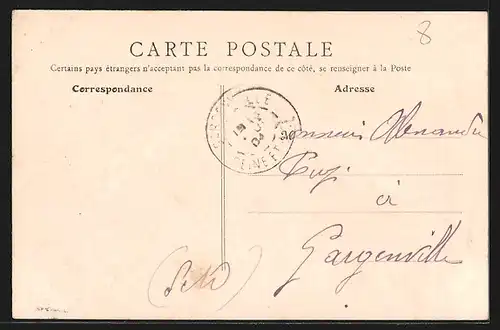 8
CARTE POSTALE
Certains pays étrangers n'acceptant pas la correspondance de ce côté, se renseigner à la Poste
Correspondance
Adresse
Monsieur Alexandre
à
Gargenville